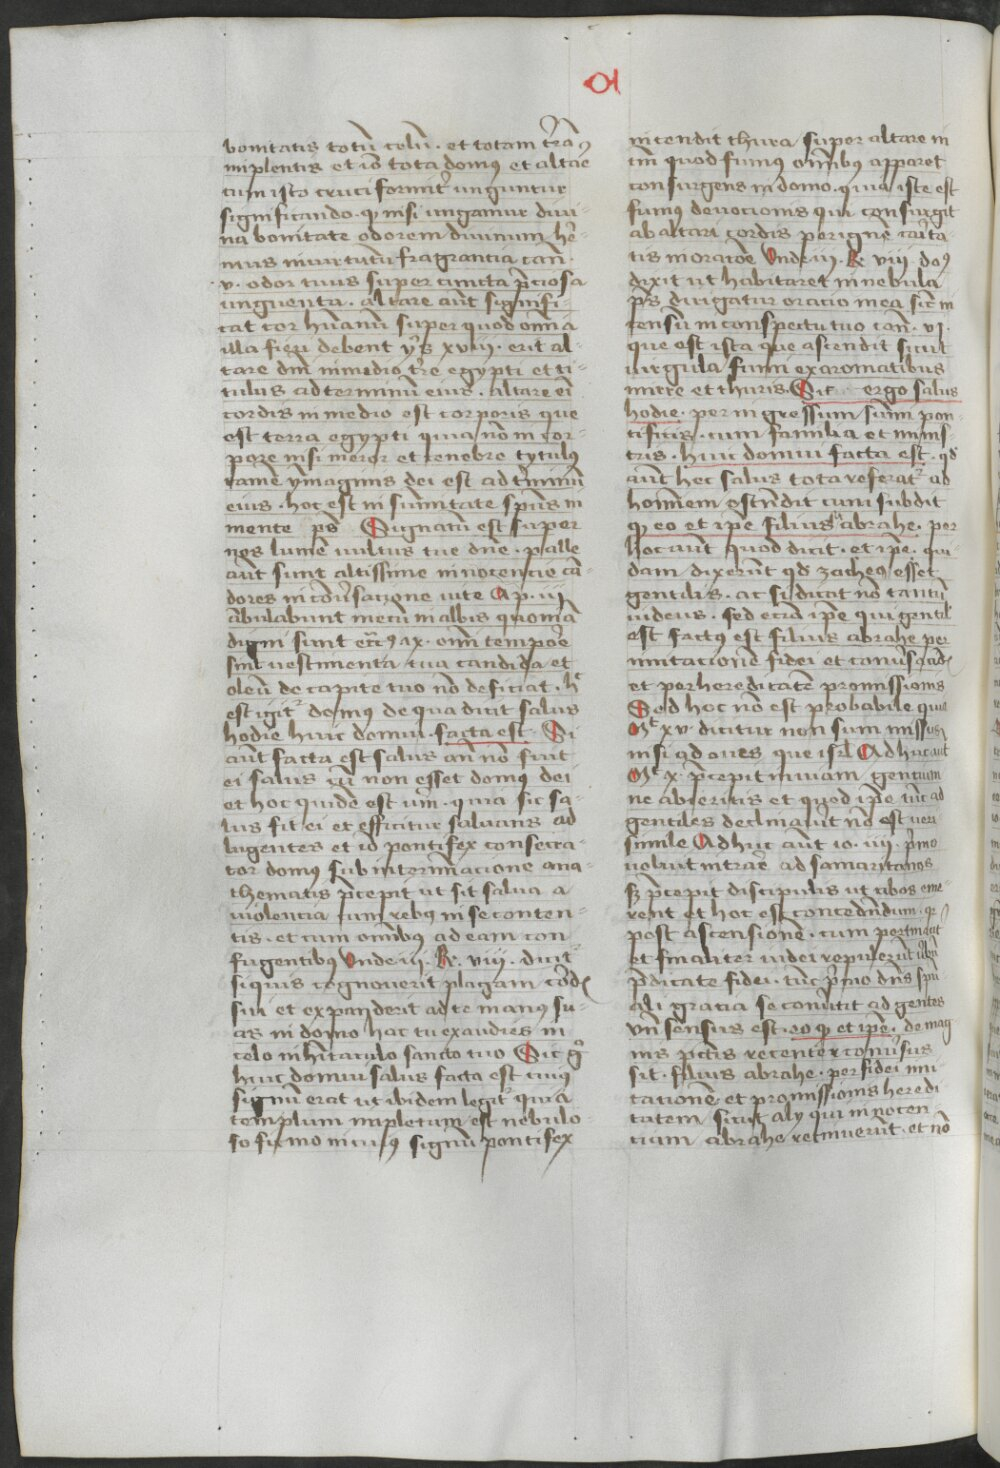 bonitatis totū celū · et totam t̄rā
implentis et iō tota domꝰ et altae
cum isto cruciformit̄ unguntur
significando · qꝫ nisi ungamur diui-
na bonitate odorem diuinum hē-
mus in uirtutū fragrantia can̄ ·
v · odor tuus super cuncta p̄ciosa
unguenta · altare aūt signifi-
cat cor hūanū super quod om̄ia
illa fieri debent ys̄ xviii · erit al-
tare dn̄i in medio t̄re egypti et ti-
tulus ad terminū eius · altare ei
cordis in medio est corporis que
est terra egypti quia nō in cor-
pore nisi meror et tenebre tytulꝰ
tamē ymaginis dei est ad t̄minū
eius · hoc est in sūmitate sp̄us in
mente ps̄ Signatū est super
nos lumē uultus tue dn̄e · palle
aūt sunt altissime innocencie cā-
dores in cōūsacione uite Ap · iii
ābulabunt mecū in albis quoniā
digni sunt ecc̄s ix · omī tempore
sint uestimenta tua candida et
oleū de capite tuo nō deficiat · h̄
est igit̄ domꝰ de qua dicit salus
hodie huic domui · facta est · Si
aūt facta est salus an̄ nō fuit
ei salus cū non esset domus dei
et hoc quidē est uerū · quia sic sa-
lus fit ei et efficitur saluans ad
lugentes et iō pontifex consecra-
tor domus sub interminacione ana-
thematis p̄cepit ut sit salua a
uiolencia cum rebꝰ in se conten-
tis · et cum omībus ad eam con-
fugentibus Unde iii · Rͤ · viii · dicit̄
si quis cognouerit plagam cord
sui et expanderit ad te manus su-
as in domo hac tu exaudies in
celo in h̄itaculo sancto tuo Sic gͦ
huic domui salus facta est cuius
signū erat ut ibidem legit̄ quia
templum impletum est nebulo-
so fumo in cuiꝰ signū pontifex
incendit thura super altare in
tm̄ quod fumꝰ omībus apparet
consurgens in domo · quia iste est
fumꝰ deuocionis qui consurgit
ab altari cordis per ignē carita-
tis in oracōe Unde iii · Rͤ viii · dn̄s
dixit ut habitaret in nebula
ps̄ dirigatur oracio mea sic̄ in
censū in conspectu tuo can̄ · vi ·
que est ista que ascendit sicut
uirgula fumi ex aromatibus
mirre et thuris · Sic ergo salus
hodie · per ingressum sūmi pon-
tificis · cum familia et minis-
tris · huic domui facta est · qd
aūt hec salus tota referat̄ ad
hominem ostendit cum subdit
qꝫ eo et ipse filius abrahe · per
hoc aūt quod dicit · et ip̄e · qui-
dam dixerūt qd zacheꝰ esset
gentilis · ac si dicat nō tantū
iudeus · sed ecia ip̄e qui gentil
est factꝰ est filius abrahe per
imitacionē fidei et conūs
et per hereditatē promissionis
Sed hoc nō est probabile quia
Mͭ xv · dicitur non sum missus
nisi ad oues que isrl̄ Adhuc aūt
Mͭ x · p̄cepit in uiam gentium
ne abieritis et quod ip̄e tūc ad
gentiles declinauit nō est ueri
simile Adhuc aūt io · iiii · p̄mo
uoluit intrare ad samaritanos
sꝫ p̄cepit discipulis ut cibos eme
rent et hoc est concedendum · qꝫ
post ascensionē · cum pertinaciter
et finaliter iudei repulerūt uerbū
p̄dicate fidei · tūc p̄mo dn̄s spu
ali gratia se conūtit ad gentes
Un̄ sensus est · eo qꝫ et ip̄e · de mag
nis pctīs recenter conūsus
sit · filius abrahe · per fidei imi
tacionē · et promissionis heredi
tatem · sicut aly qui innocen
ciam abrahe retinuerūt · et nō